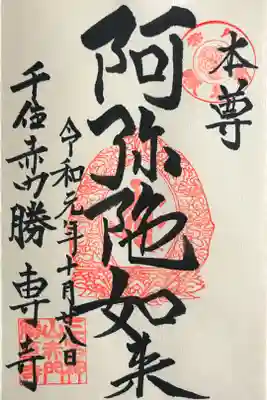 本尊
阿弥陀如来
令和元年十月廿八日
千住赤門勝専寺